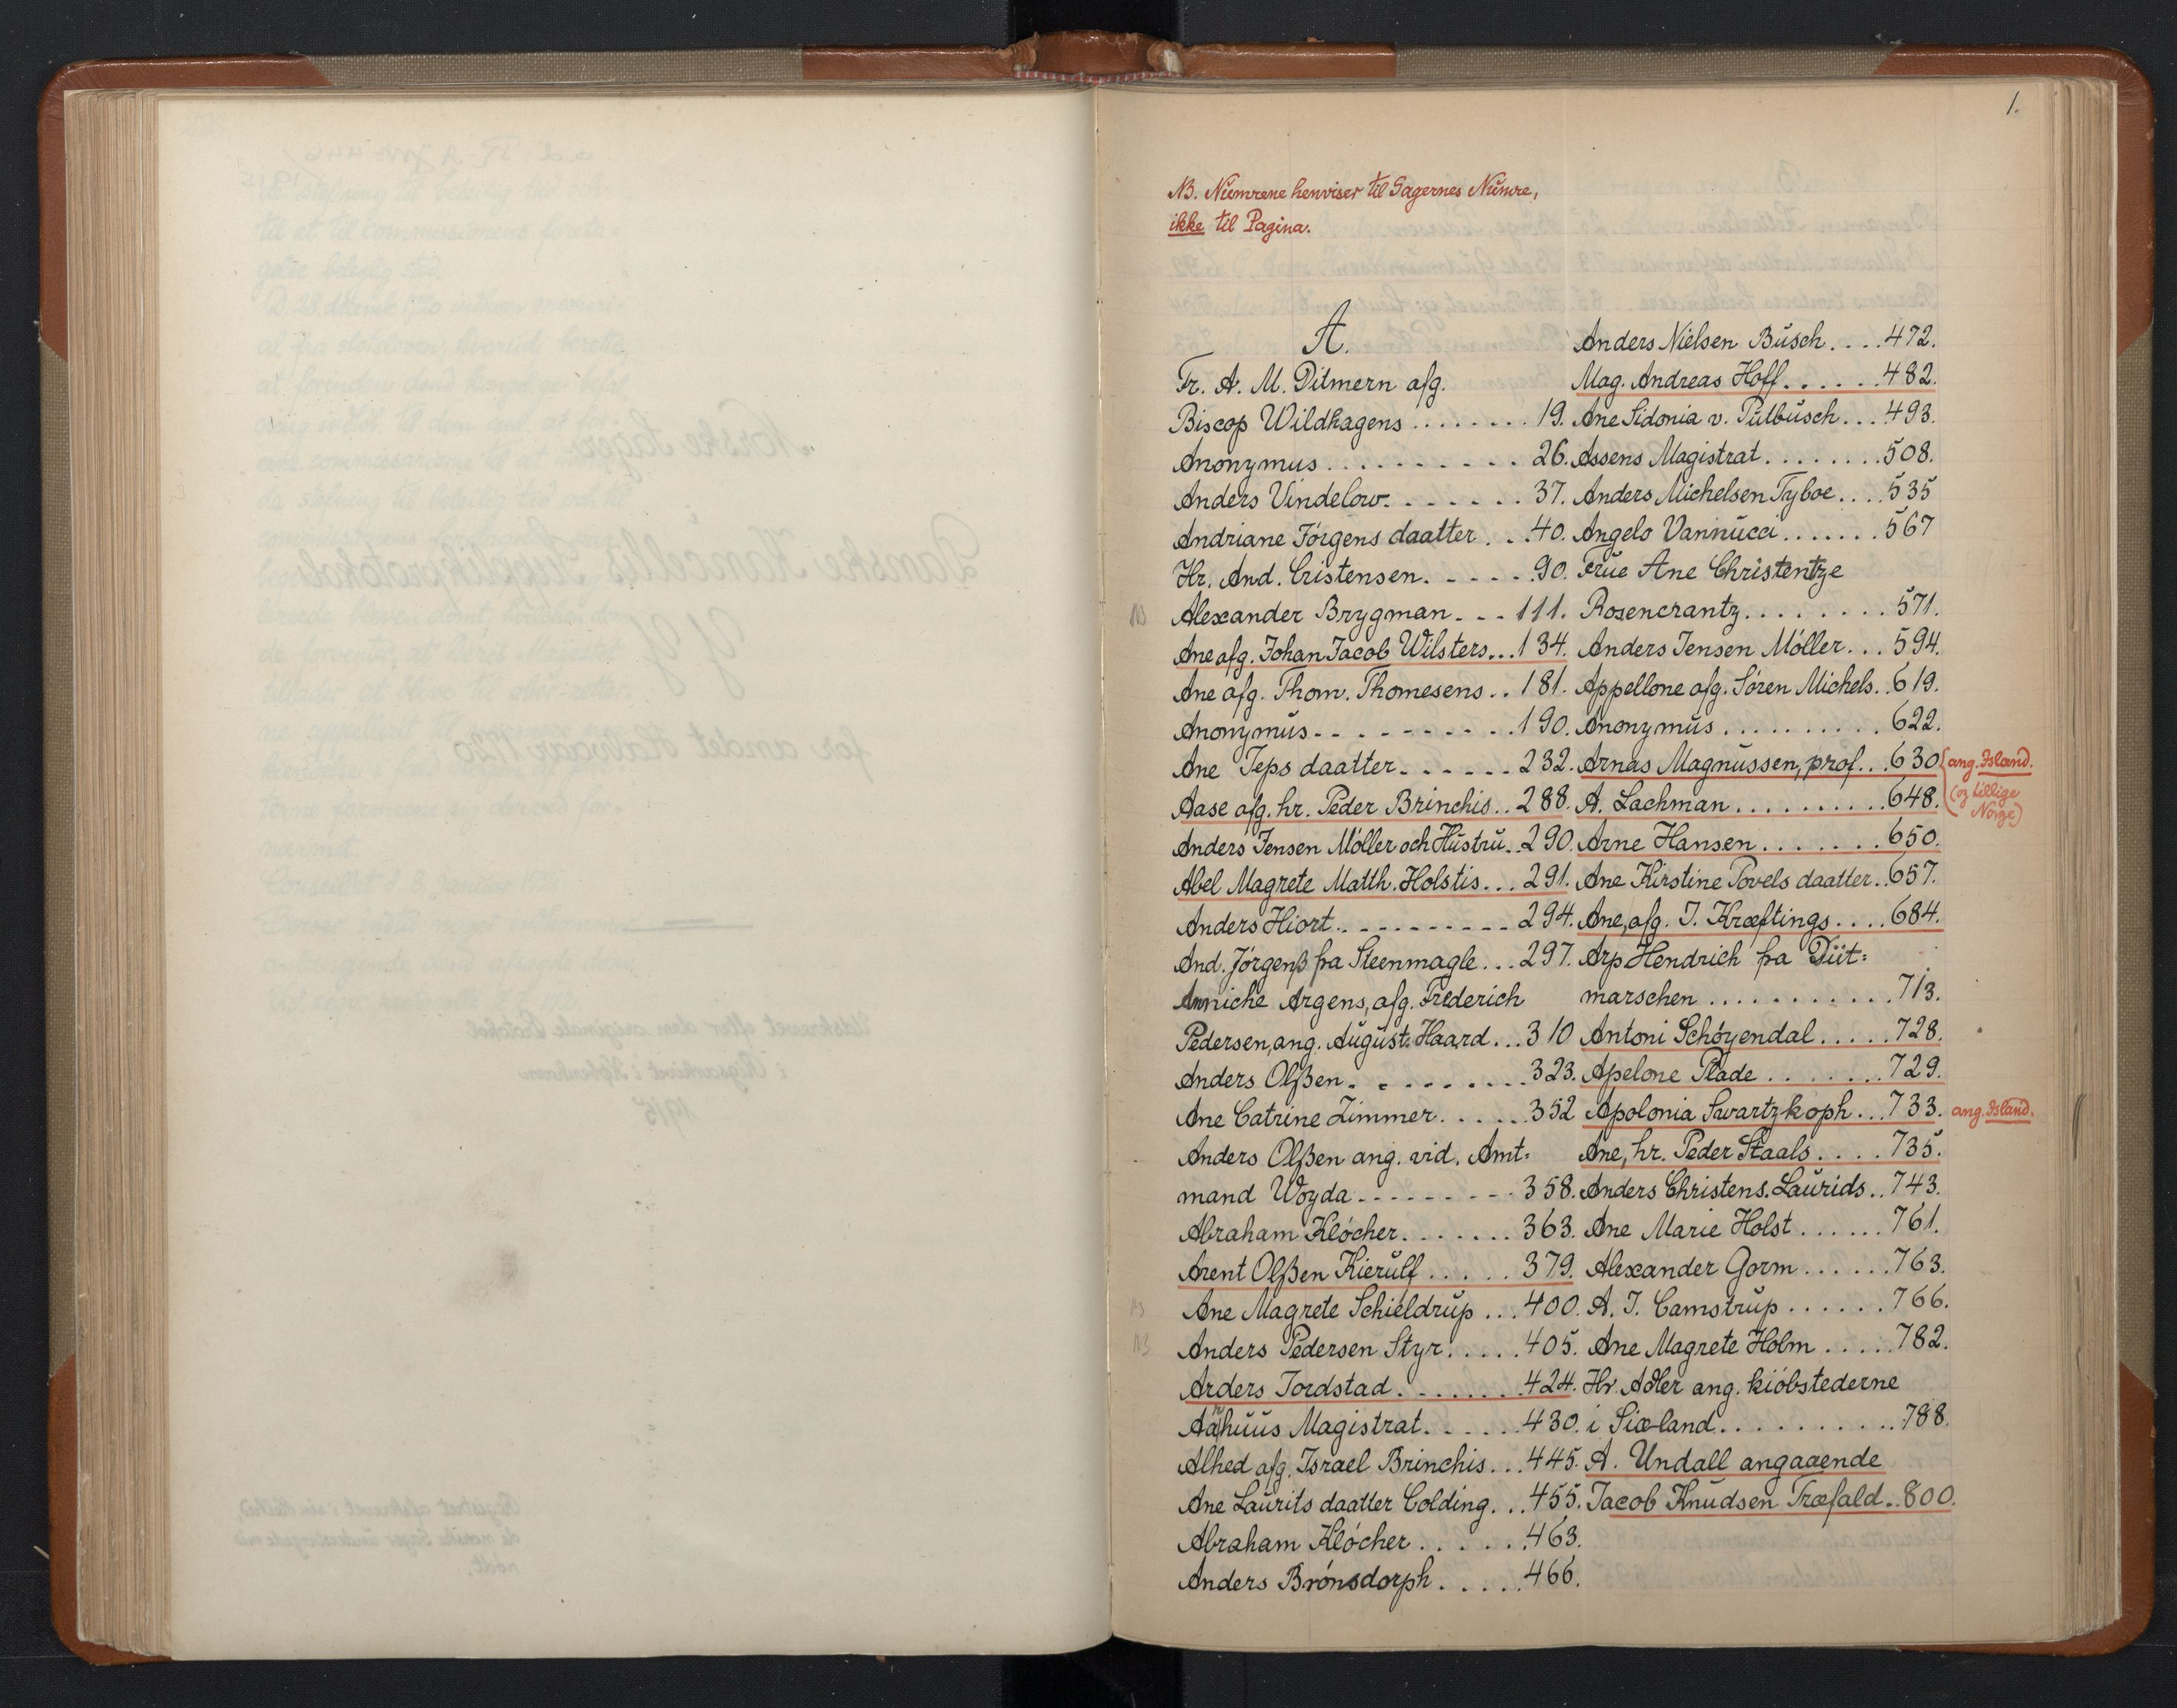 1.
NB. Numrene henviser til Sagernes Numre,
ikke til Pagina.
A.
Fr. A. M. Ditmern afg.
Biscop Wildhagens ........ 19.
Anonymus .......... 26.
Anders Vindelow ....... 37.
Andriane Jörgens daatter ... 40.
Hr. And. Cristensen. ..... 90.
NB Alexander Brygman ... 111.
Ane afg. Johan Jacob Wilsters... 134.
Ane afg. Thom. Thomesens .. 181.
Anonymus .......... 190.
Ane Jeps daatter ...... 232.
Aase afg. hr. Peder Brinchis .. 288.
Anders Jensen Möller och Hustru .. 290.
Abel Magrete Matth. Holstis ... 291.
Anders Hiort .......... 294.
And. Jörgenß fra Steenmagle ... 297.
Anniche Argens, afg. Frederich
Pedersen, ang. August. Haard ... 310
Anders Olßen ......... 323.
Ane Catrine Zimmer ...... 352
Anders Olßen ang. vid. Amt=
mand Woyda ......... 358.
Abraham Klöcher ....... 363.
Arent Olßen Kierulf ..... 379.
NB Ane Magrete Schieldrup ... 400.
NB Anders Pedersen Styr ..... 405.
Arders Jordstad ........ 424.
Aarhuus Magistrat ...... 430.
Alhed afg. Israel Brinchis ... 445.
Ane Laurits daatter Colding ... 455.
Abraham Klöcher ...... 463.
Anders Brönsdorph ..... 466.
Anders Nielsen Busch .... 472.
Mag. Andreas Hoff ...... 482.
Ane Sidonia v. Putbusch .... 493.
Assens Magistrat ........ 508.
Anders Michelsen Tyboe .... 535
Angelo Vannucci ....... 567
Frue Ane Christentze
Rosencrantz ........ 571.
Anders Jensen Möller ... 594.
Appellone afg. Sören Michels .. 619.
Anonymus .......... 622.
Arnas Magnussen, prof... 630 ang. Island.
A. Lachman .......... 648. (og tillige
Norge)
Arne Hansen ....... 650.
Ane Kirstine Povels daatter .. 657.
Ane, afg. J. Kræftings .... 684.
Arp Hendrich fra Diit=
marschen ........... 713.
Antoni Schöyendal ..... 728.
Apelone Plade ....... 729.
Apolonia Swartzkoph ... 733. ang. Island.
Ane, hr. Peder Staals .... 735.
Anders Christens. Laurids .. 743.
Ane Marie Holst ...... 761.
Alexander Gorm ...... 763.
A. J. Camstrup ...... 766.
Ane Magrete Holm ..... 782.
Hr. Adler ang. kiöbstederne
i Siæland .......... 788.
A. Undall angaaende
Jacob Knudsen Træfald .. 800.